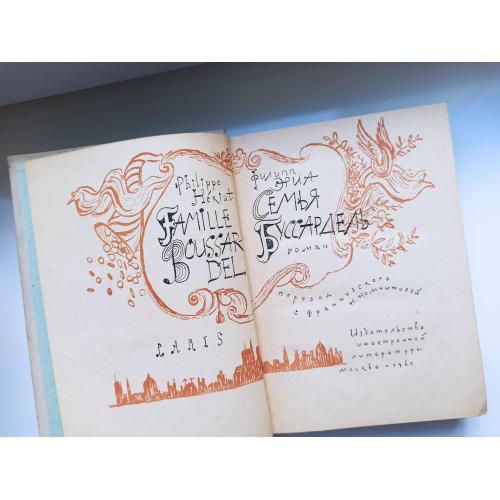 Philippe
Hériat
FAMILLE
BOUSSAR
DEL
PARIS
филипп
ЭРИА
СЕМЬЯ
БУССАРДЕЛЬ
роман
перевод
с французского
Н. Немчиновой
Издательство
иностранной
литературы
Москва • 1961